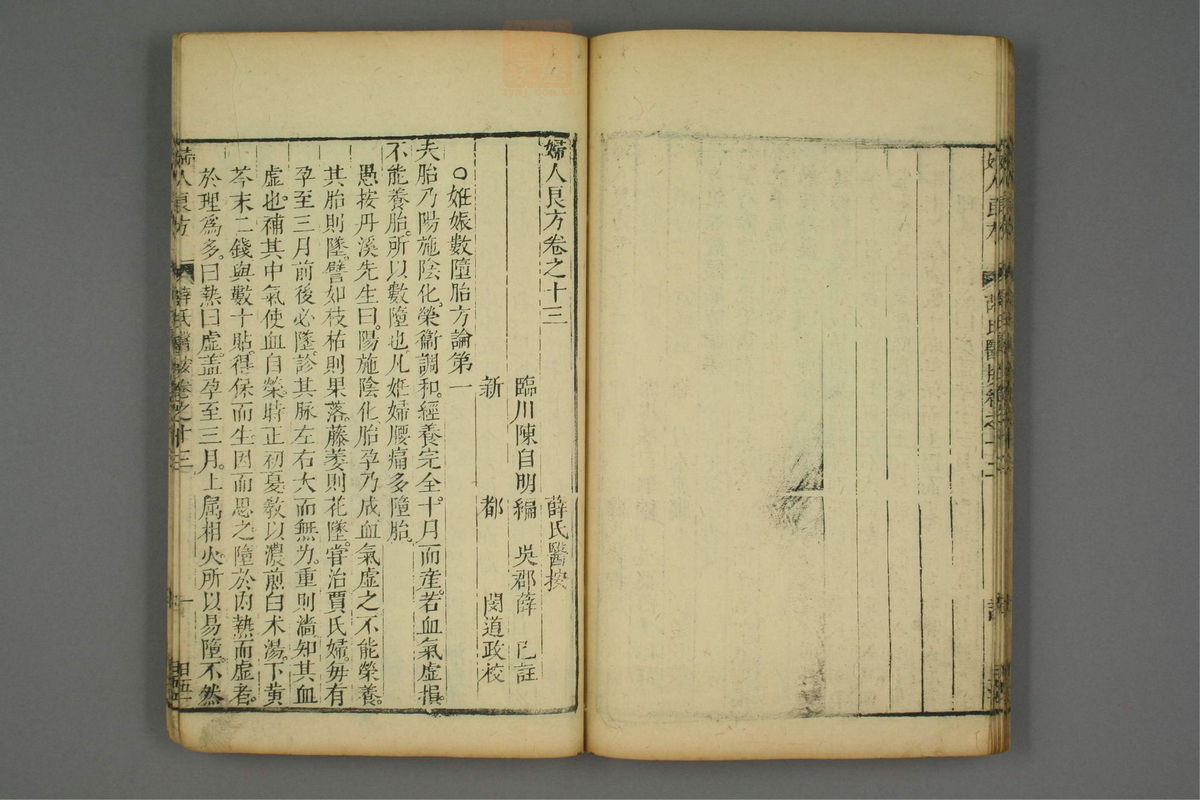 婦人良方卷之十三
薛氏醫按
臨川陳自明編 吳郡薛 已註
新 都 閔道政校
○姙娠數墮胎方論第一
夫胎乃陽施陰化。榮衞調和。經養完全。十月而産。若血氣虛損。
不能養胎。所以數墮也。凡姙婦腰痛多墮胎。
愚按丹溪先生曰。陽施陰化。胎孕乃成。血氣虛乏。不能榮養。
其胎則墜。譬如枝枯則果落。藤萎則花墜。嘗治賈氏婦。每有
孕至三月前後必墜。診其脉左右大而無力。重則濇。知其血
虛也。補其中氣使血自榮。時正初夏。教以濃煎白术湯。下黄
芩末二錢。與數十貼。得保而生。因而思之。墮於内熱而虛者。
於理爲多。曰熱曰虛。蓋孕至三月。上属相火。所以易墮。不然
婦人良方 薛氏醫按卷之十三 一
婦人良方 薛氏醫按卷之十二